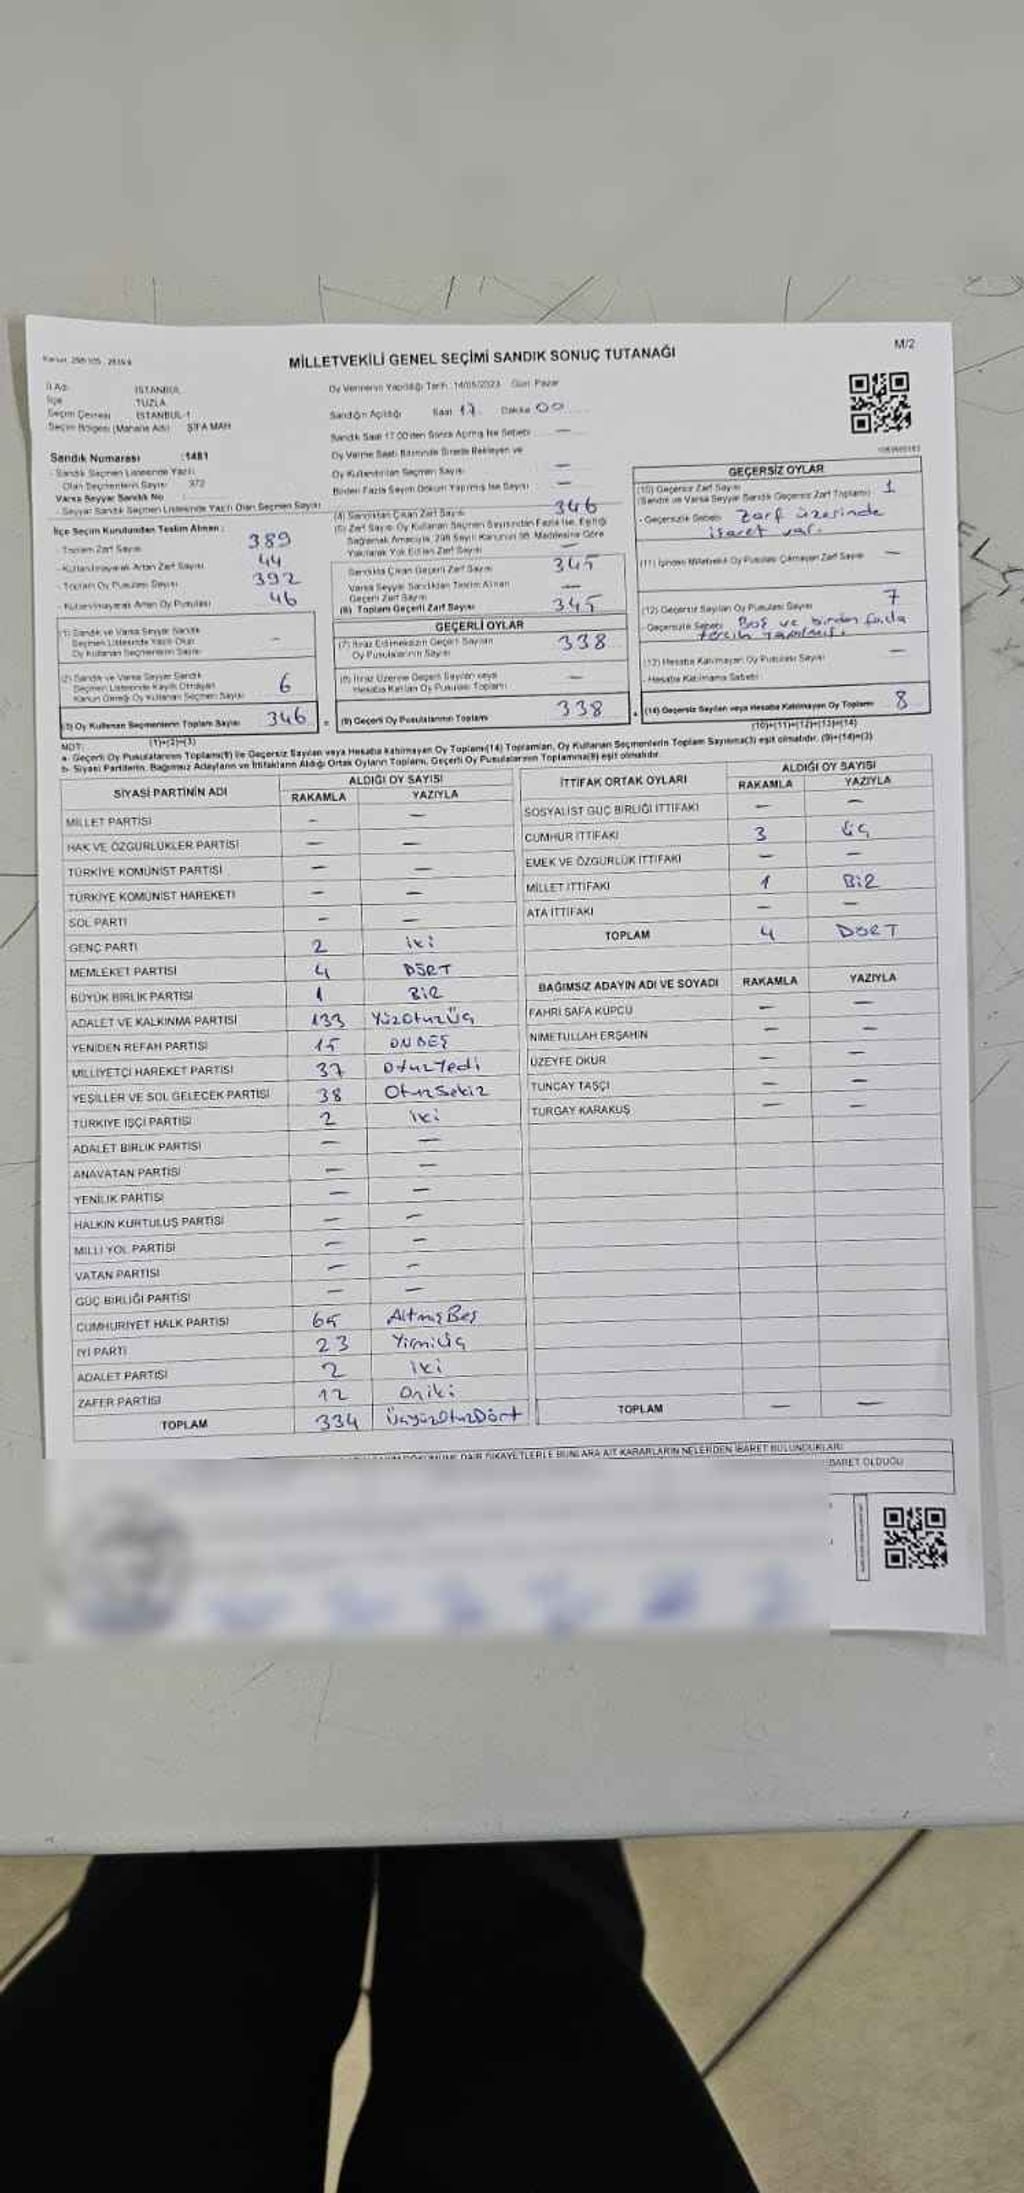 M/2
MİLLETVEKİLİ GENEL SEÇİMİ SANDIK SONUÇ TUTANAĞI
İl Adı İSTANBUL
İlçe TUZLA
Seçim Çevresi İSTANBUL-1
Seçim Bölgesi (Mahalle Adı) ŞİFA MAH
Sandık Numarası :1481
- Sandık Seçmen Listesinde Yazılı
Olan Seçmenlerin Sayısı 372
Varsa Seyyar Sandık No
- Seyyar Sandık Seçmen Listesinde Yazılı Olan Seçmen Sayısı
Oy Vermenin Yapıldığı Tarih : 14/05/2023 Gün: Pazar
Sandığın Açıldığı Saat 17 Dakika 00
Sandık Saat 17.00'den Sonra Açılmış İse Sebebi —
Oy Verme Saati Bitiminde Sırada Bekleyen ve
Oy Kullandırılan Seçmen Sayısı —
Birden Fazla Seçim Döküm Yapılmış İse Sayısı —
İlçe Seçim Kurulundan Teslim Alınan :
- Toplam Zarf Sayısı 389
- Kullanılmayarak Artan Zarf Sayısı 44
- Toplam Oy Pusulası Sayısı 392
- Kullanılmayarak Artan Oy Pusulası 46
(1) Sandık ve Varsa Seyyar Sandık
Seçmen Listesinde Yazılı Olup
Oy Kullanan Seçmenlerin Sayısı -
(2) Sandık ve Varsa Seyyar Sandık
Seçmen Listesinde Kayıtlı Olmayan
Kanun Gereği Oy Kullanan Seçmen Sayısı 6
(3) Oy Kullanan Seçmenlerin Toplam Sayısı 346
(1)+(2)=(3)
(4) Sandıktan Çıkan Zarf Sayısı 346
(5) Zarf Sayısı Oy Kullanan Seçmen Sayısından Fazla İse, Eşitliği
Sağlamak Amacıyla, 298 Sayılı Kanunun 98. Maddesine Göre
Yakılarak Yok Edilen Zarf Sayısı —
Sandıkta Çıkan Geçerli Zarf Sayısı 345
Varsa Seyyar Sandıktan Teslim Alınan
Geçerli Zarf Sayısı —
(6) Toplam Geçerli Zarf Sayısı 345
GEÇERLİ OYLAR
(7) İtiraz Edilmeksizin Geçerli Sayılan
Oy Pusulalarının Sayısı 338
(8) İtiraz Üzerine Geçerli Sayılan veya
Hesaba Katılan Oy Pusulası Toplamı —
= (9) Geçerli Oy Pusulalarının Toplamı 338
GEÇERSİZ OYLAR
(10) Geçersiz Zarf Sayısı 1
(Sandık ve Varsa Seyyar Sandık Geçersiz Zarf Toplamı)
- Geçersizlik Sebebi Zarf üzerinde
işaret var.
(11) İçinden Milletvekili Oy Pusulası Çıkmayan Zarf Sayısı —
(12) Geçersiz Sayılan Oy Pusulası Sayısı 7
- Geçersizlik Sebebi Boş ve birden fazla
tercih yapılmış.
(13) Hesaba Katılmayan Oy Pusulası Sayısı —
- Hesaba Katılmama Sebebi
+ (14) Geçersiz Sayılan veya Hesaba Katılmayan Oy Toplamı 8
(10)+(11)+(12)+(13)=(14)
NOT:
a- Geçerli Oy Pusulalarının Toplamı(9) ile Geçersiz Sayılan veya Hesaba katılmayan Oy Toplamı(14) Toplamları, Oy Kullanan Seçmenlerin Toplam Sayısına(3) eşit olmalıdır. (9)+(14)=(3)
b- Siyasi Partilerin, Bağımsız Adayların ve İttifakların Aldığı Ortak Oyların Toplamı, Geçerli Oy Pusulalarının Toplamına(9) eşit olmalıdır
SİYASİ PARTİNİN ADI ALDIĞI OY SAYISI
RAKAMLA YAZIYLA
MİLLET PARTİSİ - —
HAK VE ÖZGÜRLÜKLER PARTİSİ — —
TÜRKİYE KOMÜNİST PARTİSİ — —
TÜRKİYE KOMÜNİST HAREKETİ — —
SOL PARTİ — —
GENÇ PARTİ 2 iki
MEMLEKET PARTİSİ 4 DÖRT
BÜYÜK BİRLİK PARTİSİ 1 BİR
ADALET VE KALKINMA PARTİSİ 133 YüzOtuzÜç
YENİDEN REFAH PARTİSİ 15 ONBEŞ
MİLLİYETÇİ HAREKET PARTİSİ 37 OtuzYedi
YEŞİLLER VE SOL GELECEK PARTİSİ 38 OtuzSekiz
TÜRKİYE İŞÇİ PARTİSİ 2 iki
ADALET BİRLİK PARTİSİ — —
ANAVATAN PARTİSİ — —
YENİLİK PARTİSİ — —
HALKIN KURTULUŞ PARTİSİ — —
MİLLİ YOL PARTİSİ — —
VATAN PARTİSİ — —
GÜÇ BİRLİĞİ PARTİSİ — —
CUMHURİYET HALK PARTİSİ 65 AltmışBeş
İYİ PARTİ 23 YirmiÜç
ADALET PARTİSİ 2 iki
ZAFER PARTİSİ 12 Oniki
TOPLAM 334 ÜçyüzOtuzDört
İTTİFAK ORTAK OYLARI ALDIĞI OY SAYISI
RAKAMLA YAZIYLA
SOSYALİST GÜÇ BİRLİĞİ İTTİFAKI — —
CUMHUR İTTİFAKI 3 Üç
EMEK VE ÖZGÜRLÜK İTTİFAKI — —
MİLLET İTTİFAKI 1 BİR
ATA İTTİFAKI — —
TOPLAM 4 DÖRT
BAĞIMSIZ ADAYIN ADI VE SOYADI RAKAMLA YAZIYLA
FAHRİ SAFA KÜPCÜ — —
NİMETULLAH ERŞAHİN — —
ÜZEYFE OKUR — —
TUNCAY TAŞÇI — —
TURGAY KARAKUŞ — —
TOPLAM — —
DAİR ŞİKAYETLERLE BUNLARA AİT KARARLARIN NELERDEN İBARET BULUNDUKLARI
İBARET OLDUĞU